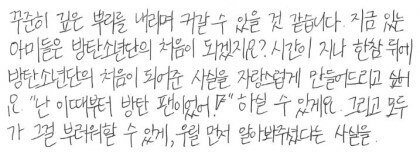 꾸준히 깊은 뿌리를 내리며 커갈 수 있을 것 같습니다. 지금 있는
아미들은 방탄소년단의 처음이 되겠지요? 시간이 지나 한참 뒤에
방탄소년단의 처음이 되어준 사실을 자랑스럽게 만들어드리고 싶어
요. "난 이때부터 방탄 팬이었어!" 하실 수 있게요. 그리고 모두
가 그걸 부러워할 수 있게, 우릴 먼저 알아봐주셨다는 사실을